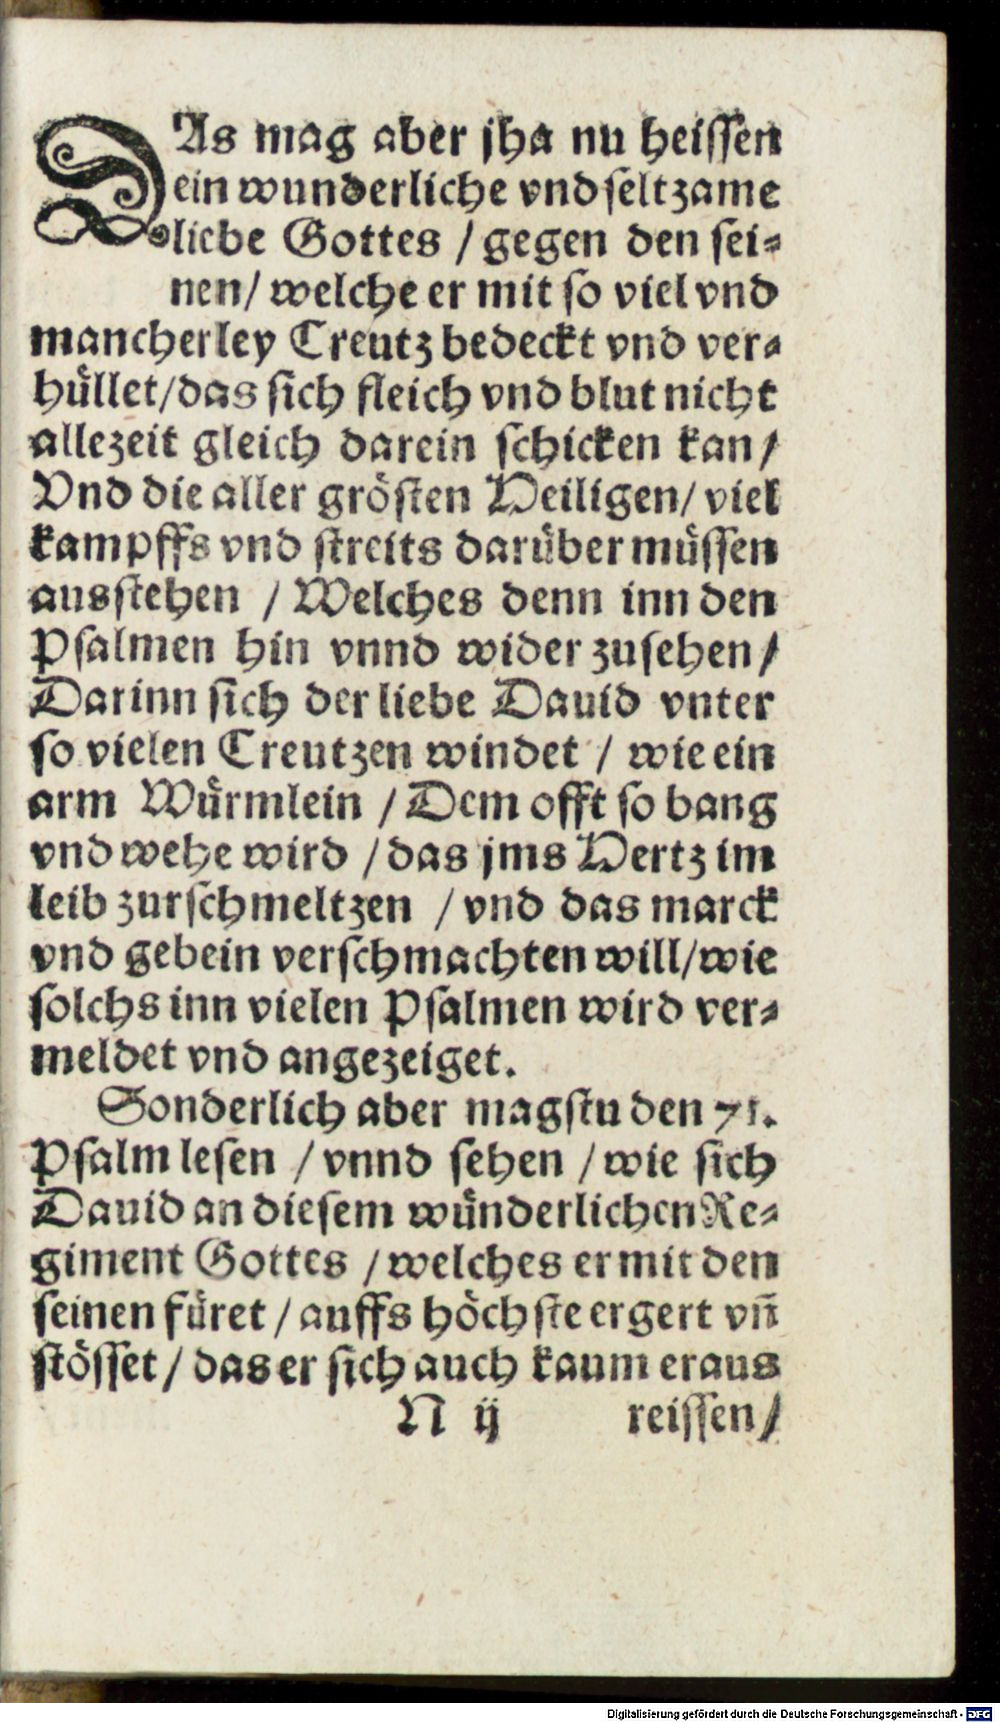 DAs mag aber jha nu heissen
ein wunderliche vnd seltzame
liebe Gottes / gegen den sei-
nen / welche er mit so viel vnd
mancherley Creutz bedeckt vnd ver-
hüllet / das sich fleich vnd blut nicht
allezeit gleich darein schicken kan /
Vnd die aller grösten Heiligen / viel
kampffs vnd streits darüber müssen
ausstehen / Welches denn inn den
Psalmen hin vnnd wider zusehen /
Darinn sich der liebe Dauid vnter
so vielen Creutzen windet / wie ein
arm Würmlein / Dem offt so bang
vnd wehe wird / das jms Hertz im
leib zurschmeltzen / vnd das marck
vnd gebein verschmachten will / wie
solchs inn vielen Psalmen wird ver-
meldet vnd angezeiget.
Sonderlich aber magstu den 71.
Psalm lesen / vnnd sehen / wie sich
Dauid an diesem wünderlichen Re-
giment Gottes / welches er mit den
seinen füret / auffs höchste ergert vñ
stösset / das er sich auch kaum eraus
N ij reissen /
Digitalisierung gefördert durch die Deutsche Forschungsgemeinschaft - DFG